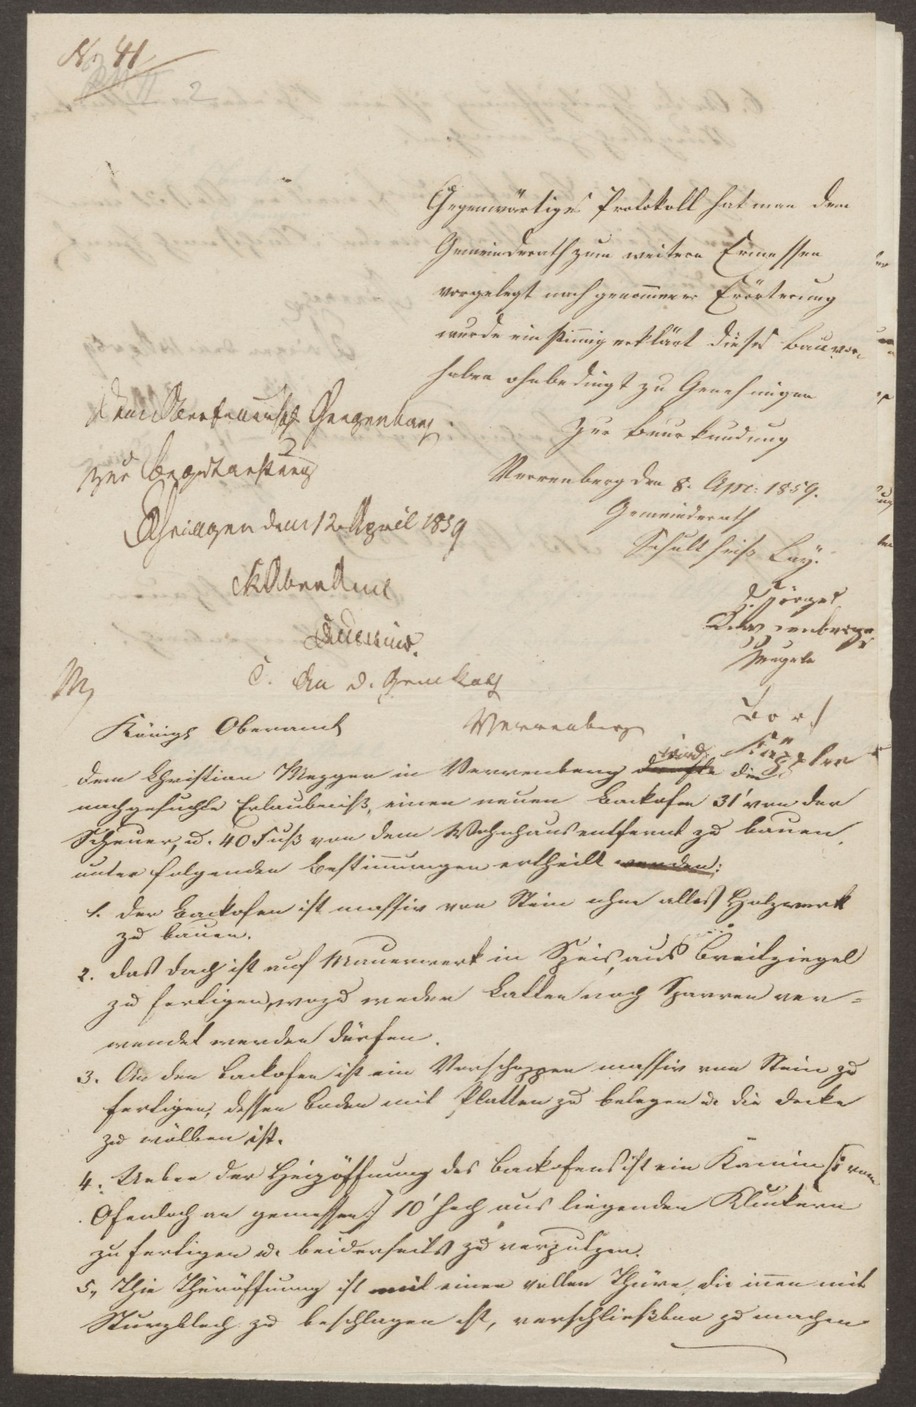 No. 41
2
Gegenwärtiges Protokoll hat man dem
Gemeinderath zum weitern Ermessen
vorgelegt nach genommener Erörterung
wurde einstimmig erklärt dieses Bauvor-
haben ohnbedingt zu Genehmigen
Zur Beurkundung
Verrenberg den 8. Apr: 1859.
Gemeinderath
Schultheiß Lay.
Weger
zur Begutachtung
Oehringen den 12. April 1859
K Oberamt
Königl Oberamt Verrenberg
Dem Christian Megger in Verrenberg wird die
nachgesuchte Erlaubniß, einen neuen Backofen 31' von der
Scheuer, u. 40 Fuß von dem Wohnhaus entfernt zu bauen,
unter folgenden Bestimmungen ertheilt werden:
1. der Backofen ist massiv von Stein ohne alles Holzwerk
zu bauen.
2. das Dach ist auf Mauerwerk in Speis, aus Breitziegel
zu fertigen, wozu weder Latten noch Sparren ver-
wendet werden dürfen.
3. An den Backofen ist ein Vorschoppen massiv von Stein zu
fertigen, dessen Boden mit Platten zu belegen u. die Decke
zu wölben ist.
4. Ueber der Heizöffnung des Backofens ist ein Kamin /: vom
Ofenloch an gemessen :/ 10' hoch aus liegenden Klukern
zu fertigen u. beiderseits zu verputzen.
5, Die Thüröffnung ist mit einer vollen Thüre, die innen mit
Sturzblech zu beschlagen ist, verschließbar zu machen